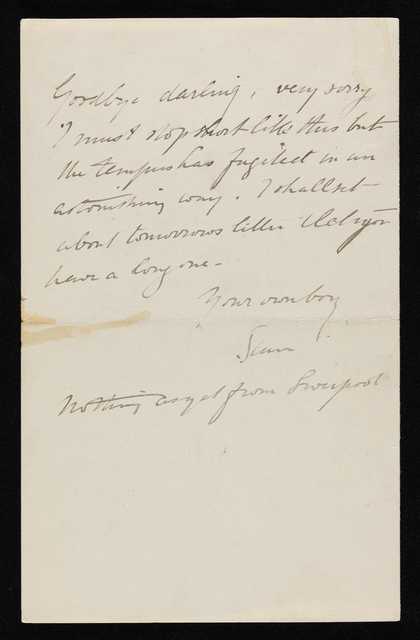 Goodbye darling, very sorry
I must stop short like this but
the tempus has fugited in an
astonishing way. I shall set
about tomorrows letter & let you
have a long one -
Your own boy
Sean
Nothing as yet from Liverpool